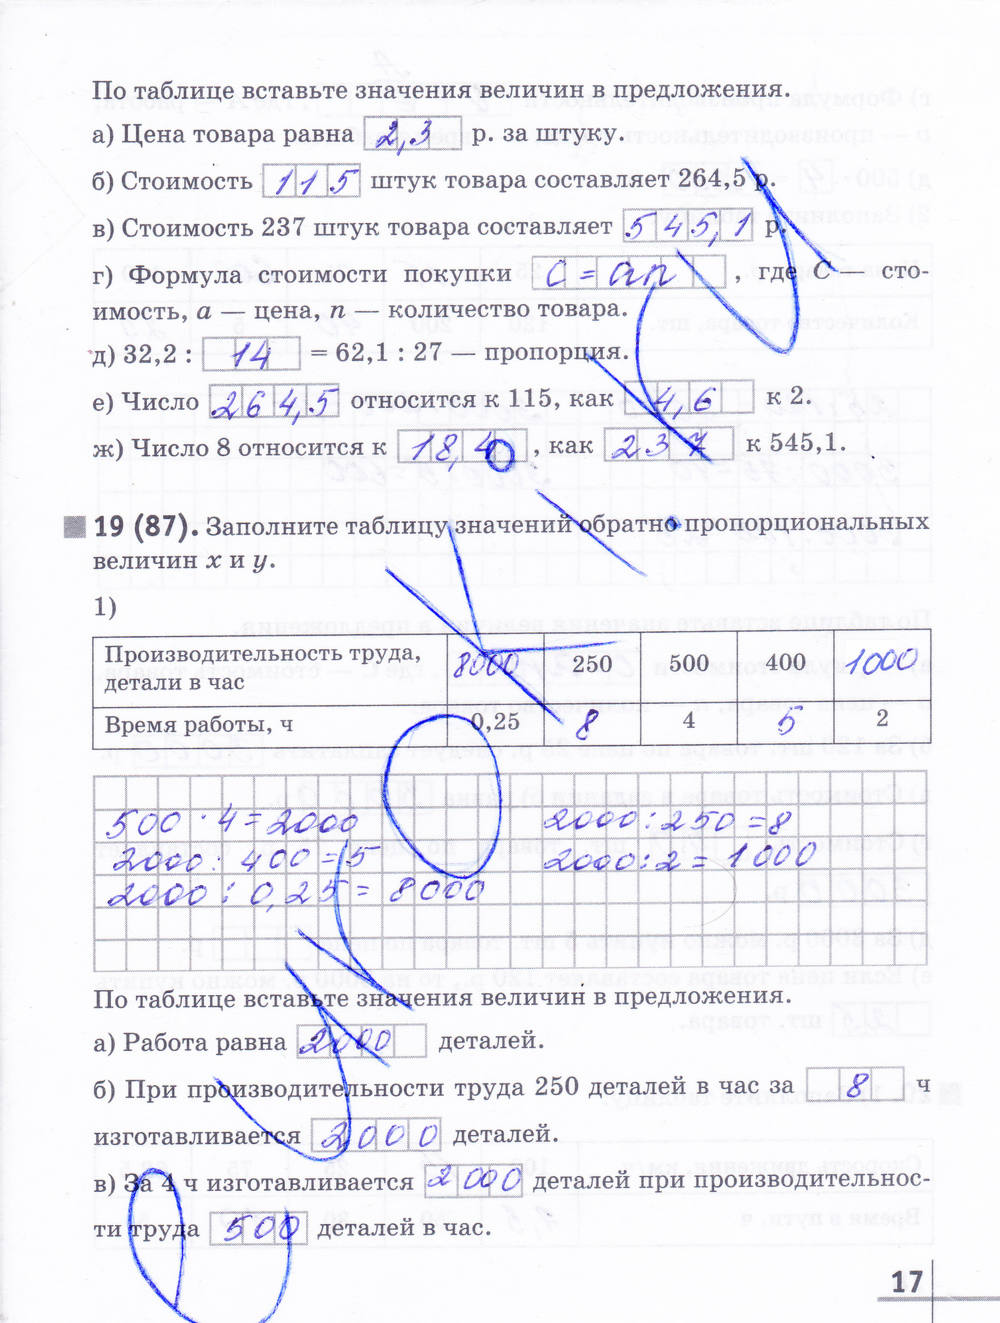 По таблице вставьте значения величин в предложения.
а) Цена товара равна 2,3 р. за штуку.
б) Стоимость 115 штук товара составляет 264,5 р.
в) Стоимость 237 штук товара составляет 545,1 р.
г) Формула стоимости покупки C = an , где C — сто-
имость, a — цена, n — количество товара.
д) 32,2 : 14 = 62,1 : 27 — пропорция.
е) Число 264,5 относится к 115, как 4,6 к 2.
ж) Число 8 относится к 18,4 , как 237 к 545,1.
19 (87). Заполните таблицу значений обратно пропорциональных
величин x и y.
1)
Производительность труда, детали в час 8000 250 500 400 1000
Время работы, ч 0,25 8 4 5 2
500 · 4 = 2000 2000 : 250 = 8
2000 : 400 = 5 2000 : 2 = 1000
2000 : 0,25 = 8000
По таблице вставьте значения величин в предложения.
а) Работа равна 2000 деталей.
б) При производительности труда 250 деталей в час за 8 ч
изготавливается 2000 деталей.
в) За 4 ч изготавливается 2000 деталей при производительнос-
ти труда 500 деталей в час.
17